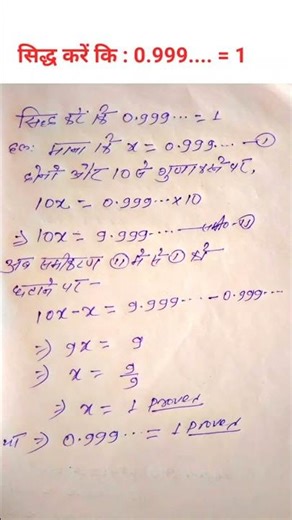 सिद्ध करें कि : 0.999.... = 1
सिद्ध करें कि 0.999... = 1
हल: माना कि x = 0.999... — ①
दोनों ओर 10 से गुणा करने पर,
10x = 0.999... × 10
⇒ 10x = 9.999... — समी० - ⑪
अब समीकरण ⑪ में से ① को
घटाने पर -
10x - x = 9.999... - 0.999...
⇒ 9x = 9
⇒ x = 9/9
⇒ x = 1 proved
या ⇒ 0.999... = 1 proved